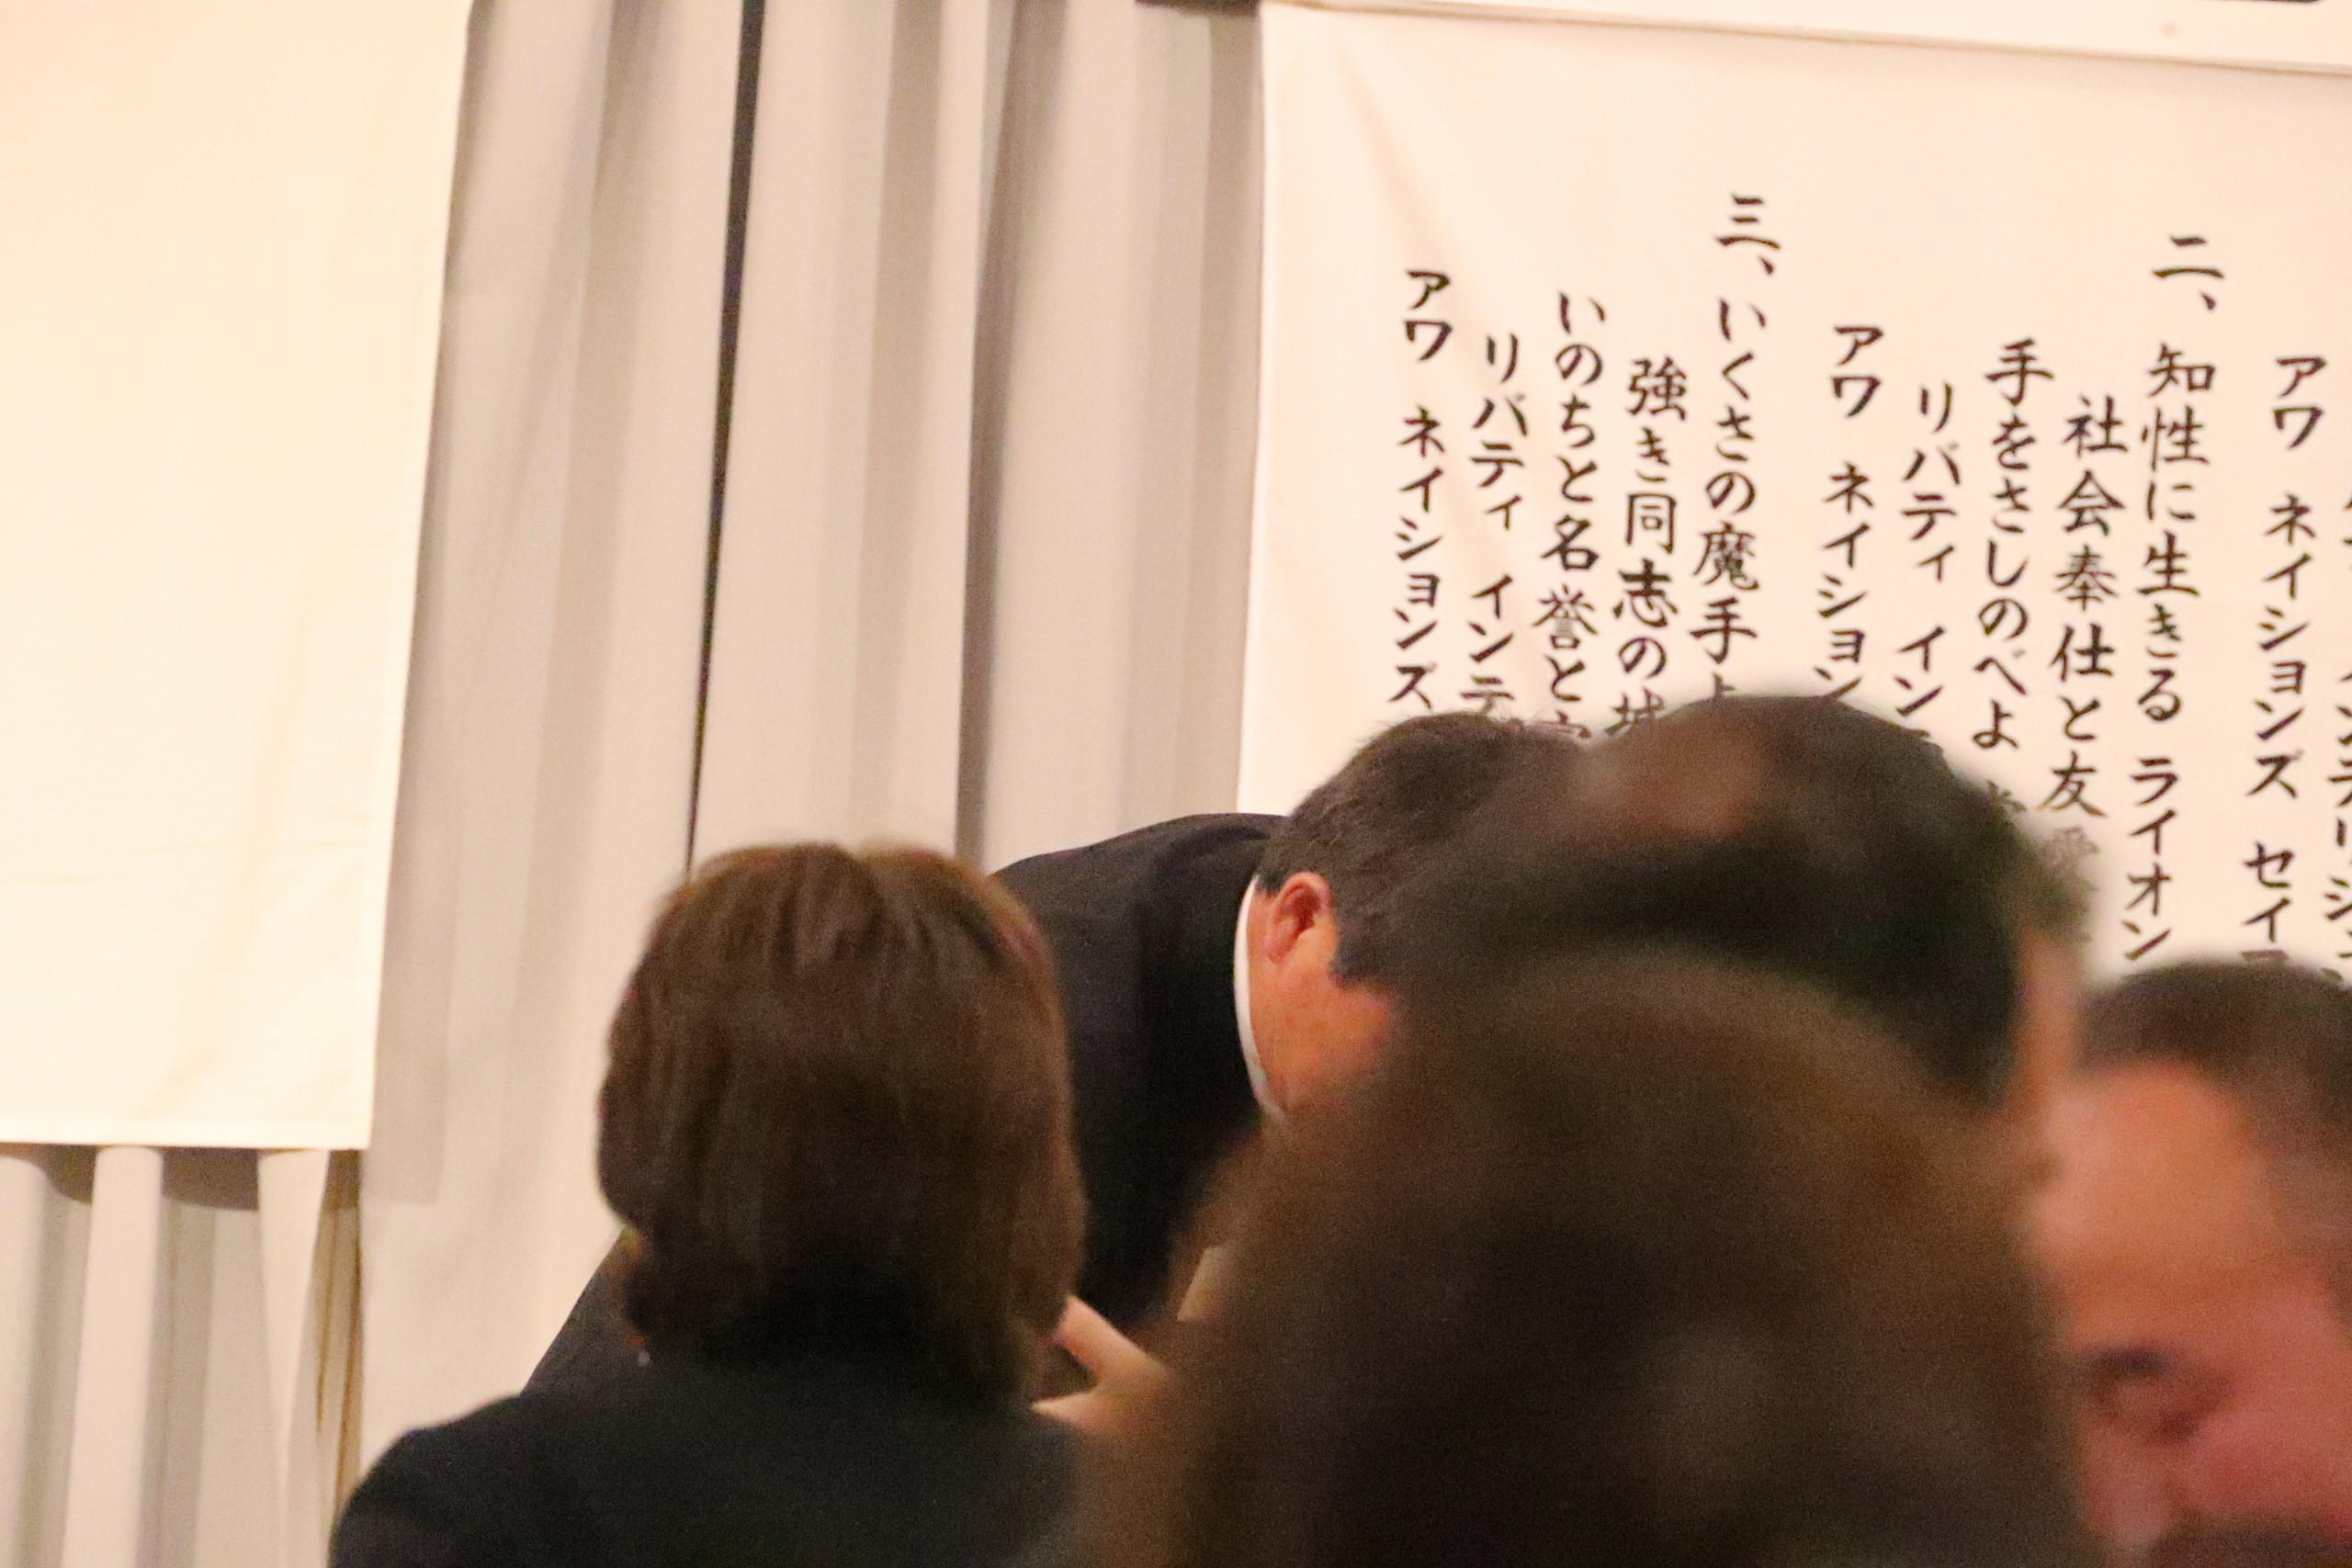 アワ ネイションズ セイ
二、知性に生きる ライオン
社会奉仕と友愛
手をさしのべよ
リバティ イン
アワ ネイション
三、いくさの魔手
強き同志の
いのちと名誉と
リバティ インテ
アワ ネイションズ